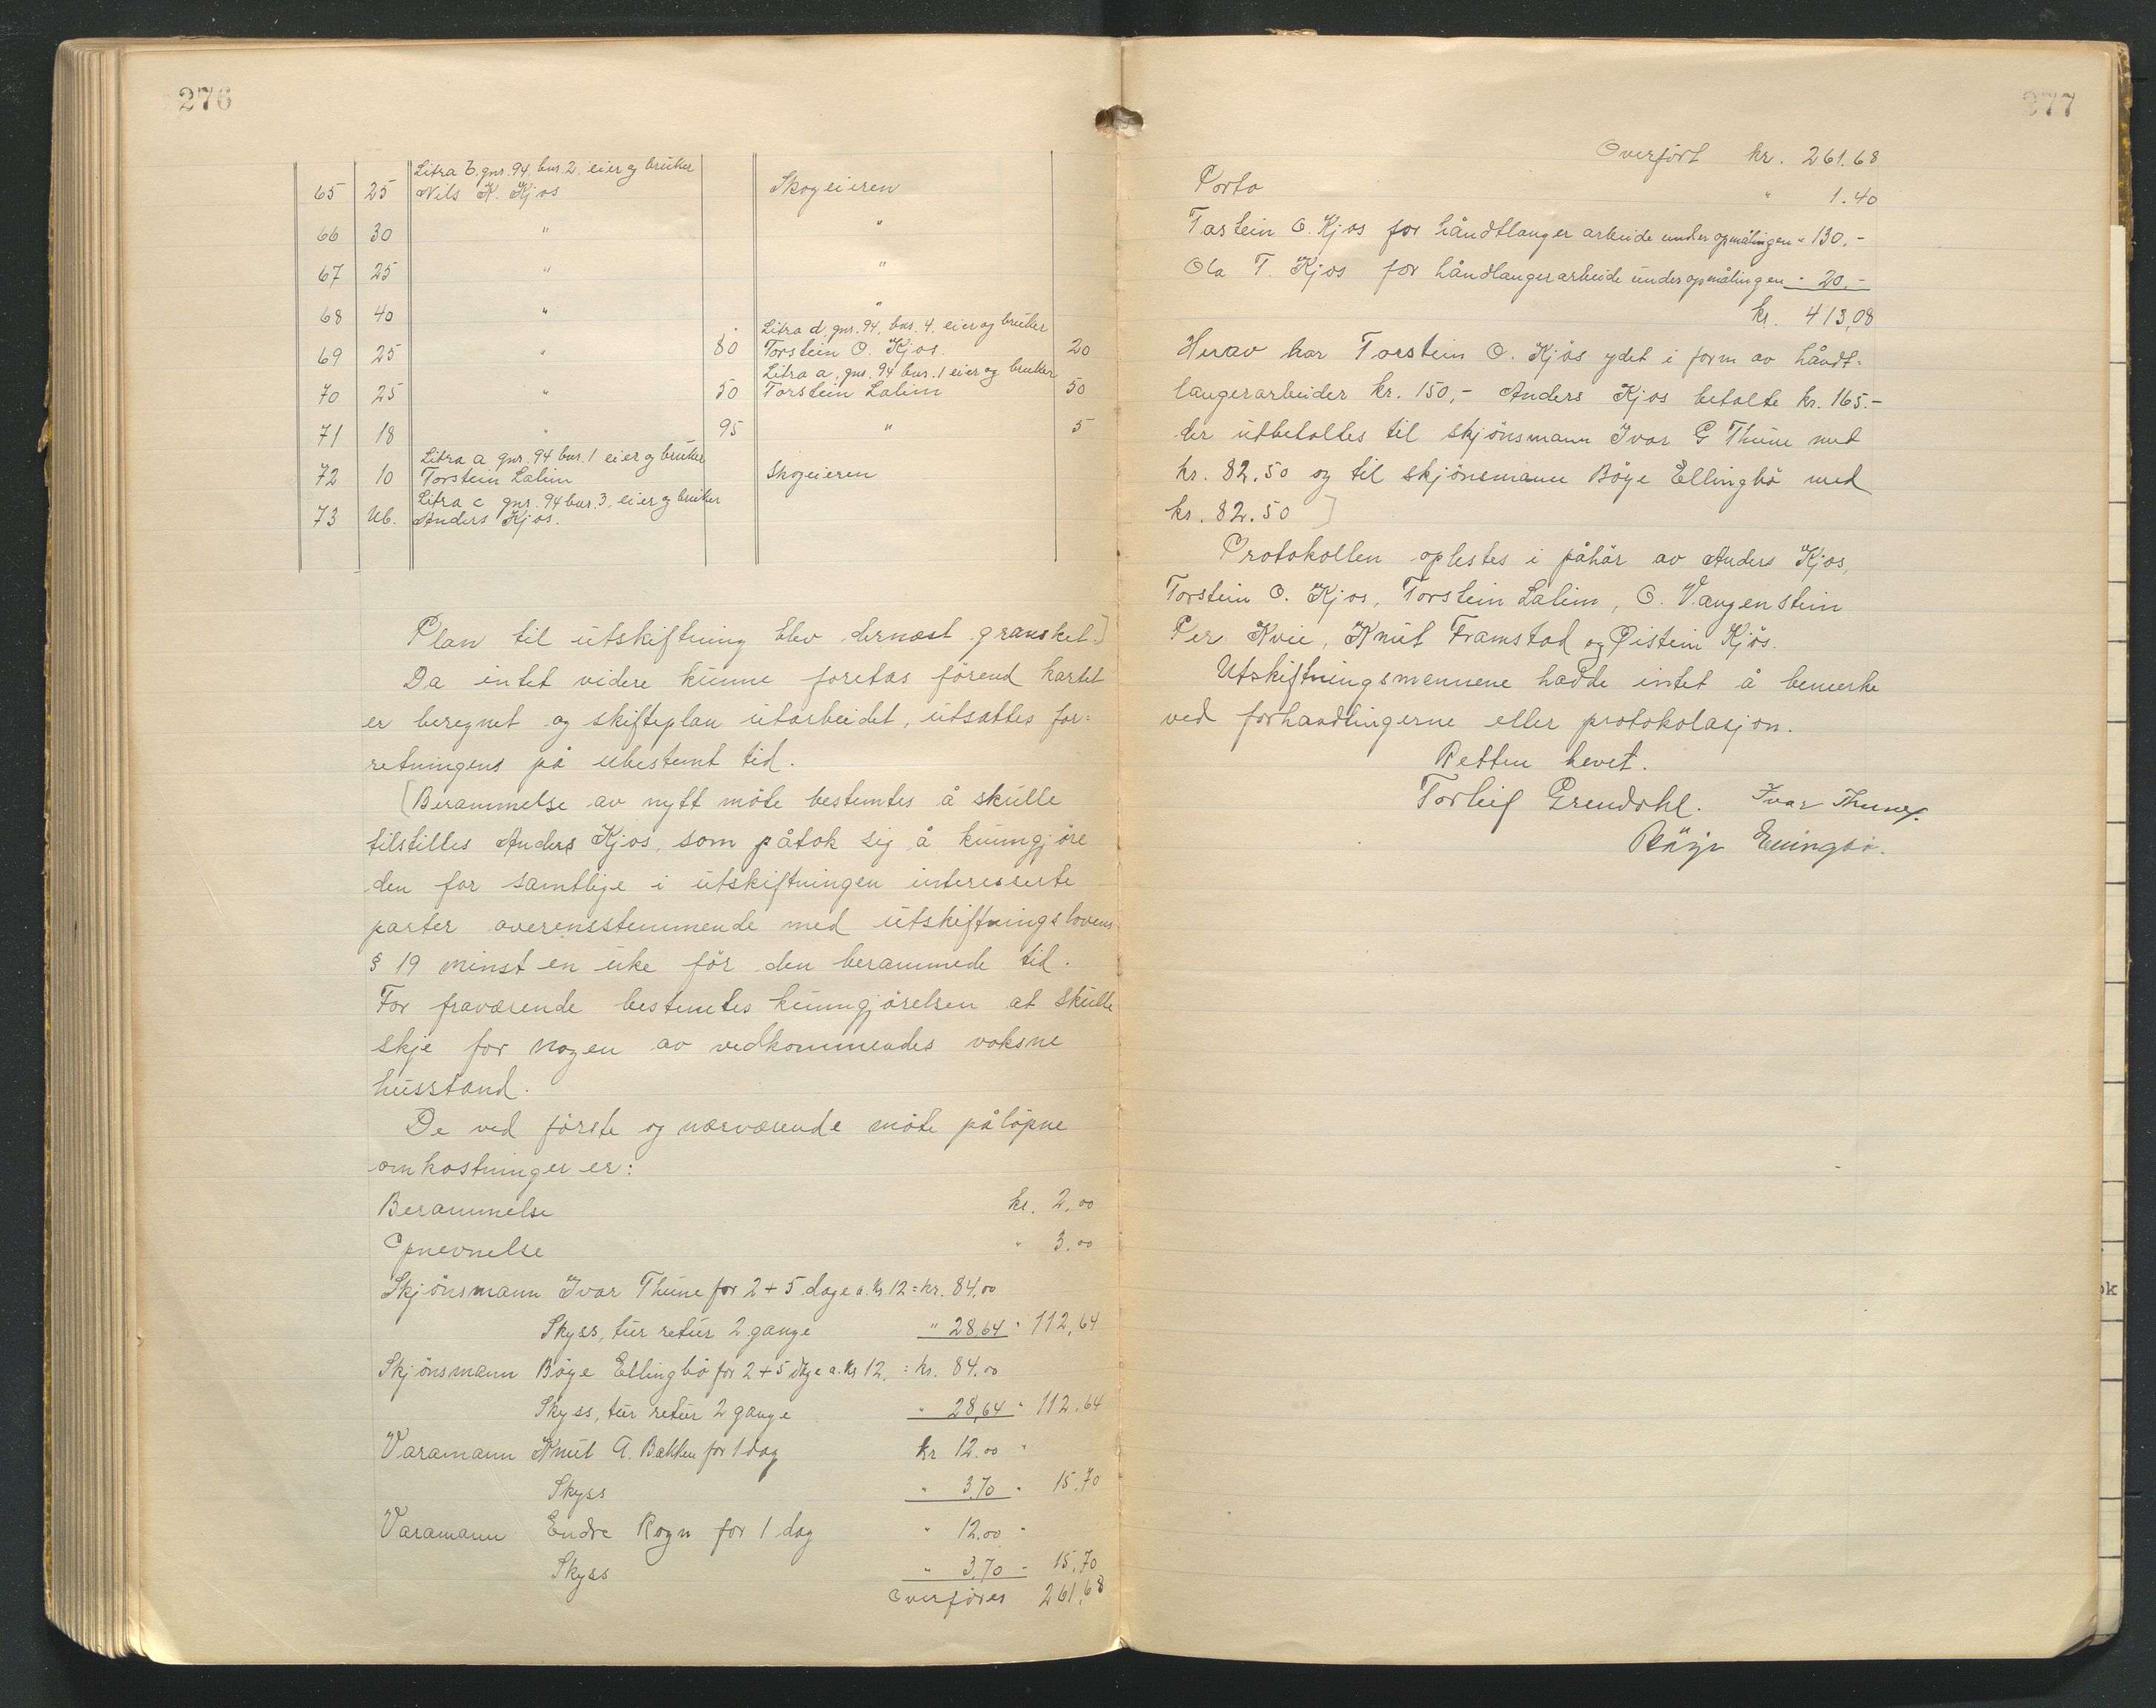 276
65 25 Litra b. gnr. 94, bnr. 2, eier og bruker Nils K. Kjos Skogeieren
66 30 " "
67 25 " "
68 40 " "
69 25 " 80 Litra d, gnr. 94, bnr. 4, eier og bruker Torstein O. Kjos. 20
70 25 " 50 Litra a, gnr. 94 bnr. 1 eier og bruker Torstein Lalim 50
71 18 " 95 " 5
72 10 Litra a gnr. 94 bnr. 1 eier og bruker Torstein Lalim Skogeieren
73 Ub. Litra c gnr. 94 bnr. 3, eier og bruker Anders Kjos.
Plan til utskiftning blev dernæst gransket.]
Da intet videre kunne foretas förend kartet
er beregnet og skifteplan utarbeidet, utsattes for=
retningens på ubestemt tid.
[Berammelse av nytt möte bestemtes å skulle
tilstilles Anders Kjos, som påtok sig å kunngjöre
den for samtlige i utskiftningen interesserte
parter overensstemmende med utskiftningslovens
§ 19 minst en uke för den berammede tid.
For fraværende bestemtes kunngjörelsen at skulle
skje for nogen av vedkommendes voksne
husstand.
De ved förste og nærværende möte pålöpne
omkostninger er:
Berammelse kr. 2.00
Opnevnelse " 3.00
Skjönsmann Ivar Thune for 2+5 dage a. kr 12 = kr. 84.00
Skyss, tur retur 2 gange " 28,64 " 112,64
Skjönsmann Böye Ellingbö for 2+5 dage a. kr 12. = kr. 84.00
Skyss, tur retur 2 gange " 28,64 " 112.64
Varamann Knut A. Bakken for 1 dag kr 12.00 "
Skyss " 3.70 " 15.70
Varamann Endre Rogn for 1 dag " 12.00 "
Skyss " 3.70 " 15.70
Overföres 261,68
277
Overfört kr. 261.68
Porto " 1.40
Tostein O. Kjos for håndtlanger arbeide under opmålingen " 130.-
Ola T. Kjos for håndlangerarbeide under opmålingen " 20.-
kr. 413,08
Herav har Torstein O. Kjös ydet i form av håndt=
langerarbeider kr. 150,- Anders Kjos betalte kr. 165.-
der utbetaltes til skjönsmann Ivar G Thune med
kr. 82.50 og til skjönsmann Böye Ellingbö med
kr. 82.50]
Protokollen oplestes i påhör av Anders Kjos,
Torstein O. Kjos, Torstein Lalim, O. Vangenstein
Per Kvie, Knut Framstad og Øistein Kjös.
Utskiftningsmennene hadde intet å bemerke
ved forhandlingerne eller protokolasjon.
Retten hevet.
Torleif Grendahl. Ivar Thune.
Böye Ellingbö.
ok